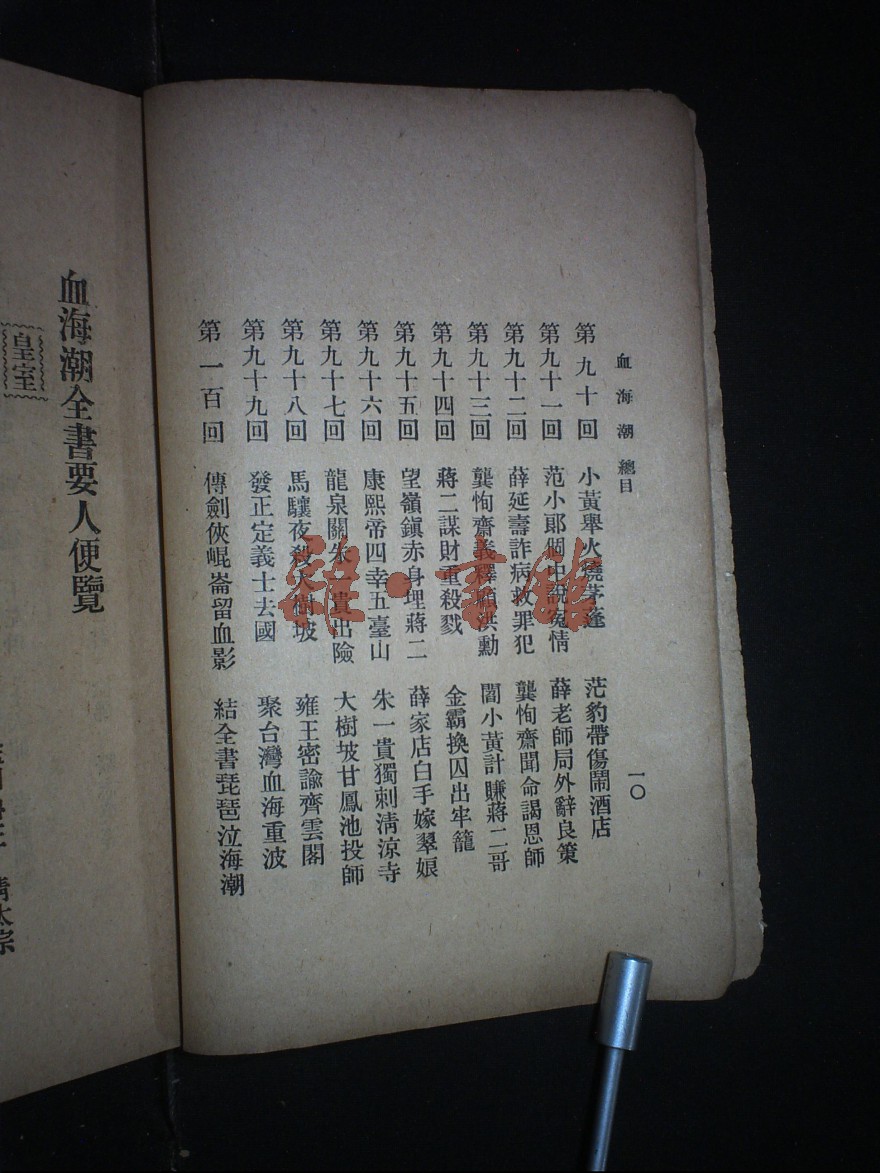 血海潮 總目
一〇
第九十回 小黃舉火燒茅蓬 茫豹帶傷鬧酒店
第九十一回 范小郎個中說冤情 薛老師局外辭良策
第九十二回 薛延壽詐病救罪犯 龔恂齋聞命謁恩師
第九十三回 龔恂齋義釋顧洪勳 閻小黃計賺蔣二哥
第九十四回 蔣二謀財重殺戮 金霸換囚出牢籠
第九十五回 望嶺鎮赤身埋蔣二 薛家店白手嫁翠娘
第九十六回 康熙帝四幸五臺山 朱一貴獨刺清涼寺
第九十七回 龍泉關朱一貴出險 大樹坡甘鳳池投師
第九十八回 馬驤夜殺大樹坡 雍王密諭齊雲閣
第九十九回 發正定義士去國 聚台灣血海重波
第一百回 傳劍俠崐崙留血影 結全書琵琶泣海潮
血海潮全書要人便覽
皇室
清太宗